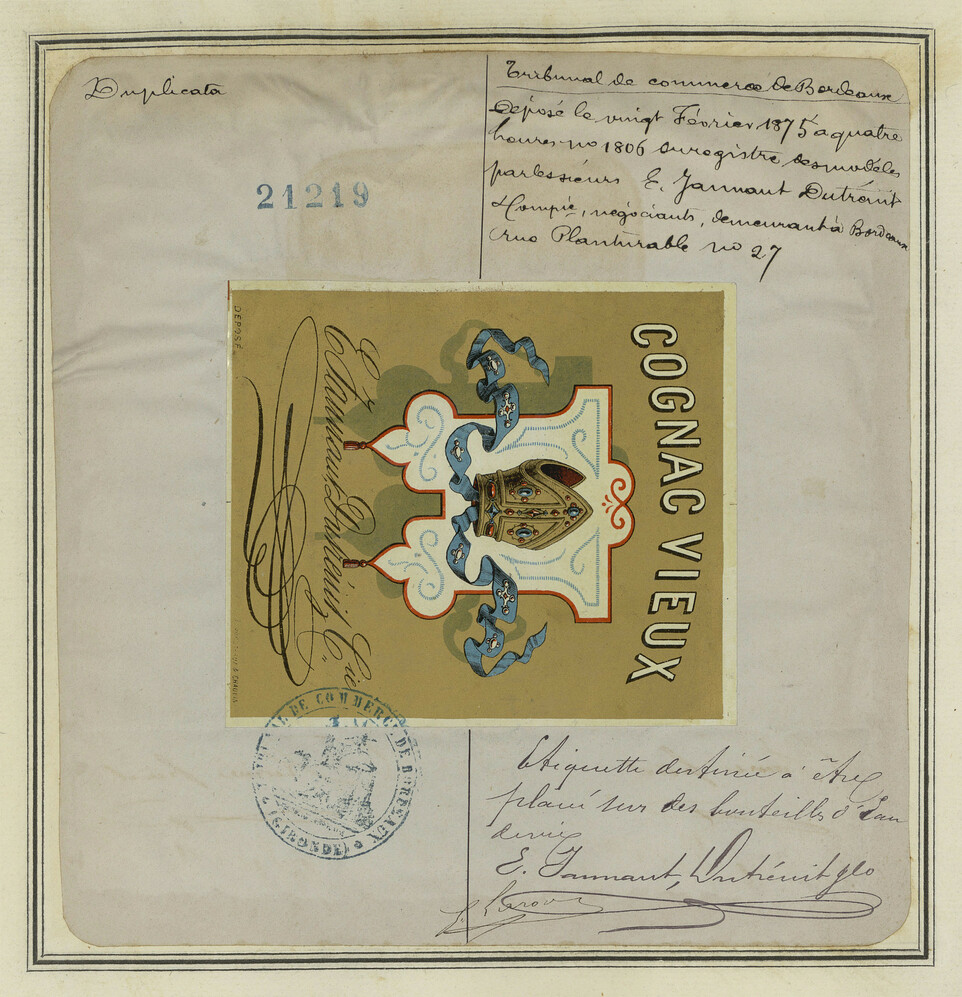 Duplicata
21219
Tribunal de commerce de Bordeaux
Déposé le vingt Février 1875 à quatre
heures no 1806 du registre des modèles
par les sieurs E. Jannaut Dutrénit
& Compie, négociants, demeurant à Bordeaux
rue Planturable no 27
COGNAC VIEUX
E. Jannaut Dutrénit & Cie
DÉPOSÉ
TRIBUNAL DE COMMERCE DE BORDEAUX
(GIRONDE)
Etiquette destinée à être
placée sur des bouteilles d'Eau
de vie
E. Jannaut, Dutrénit &Co